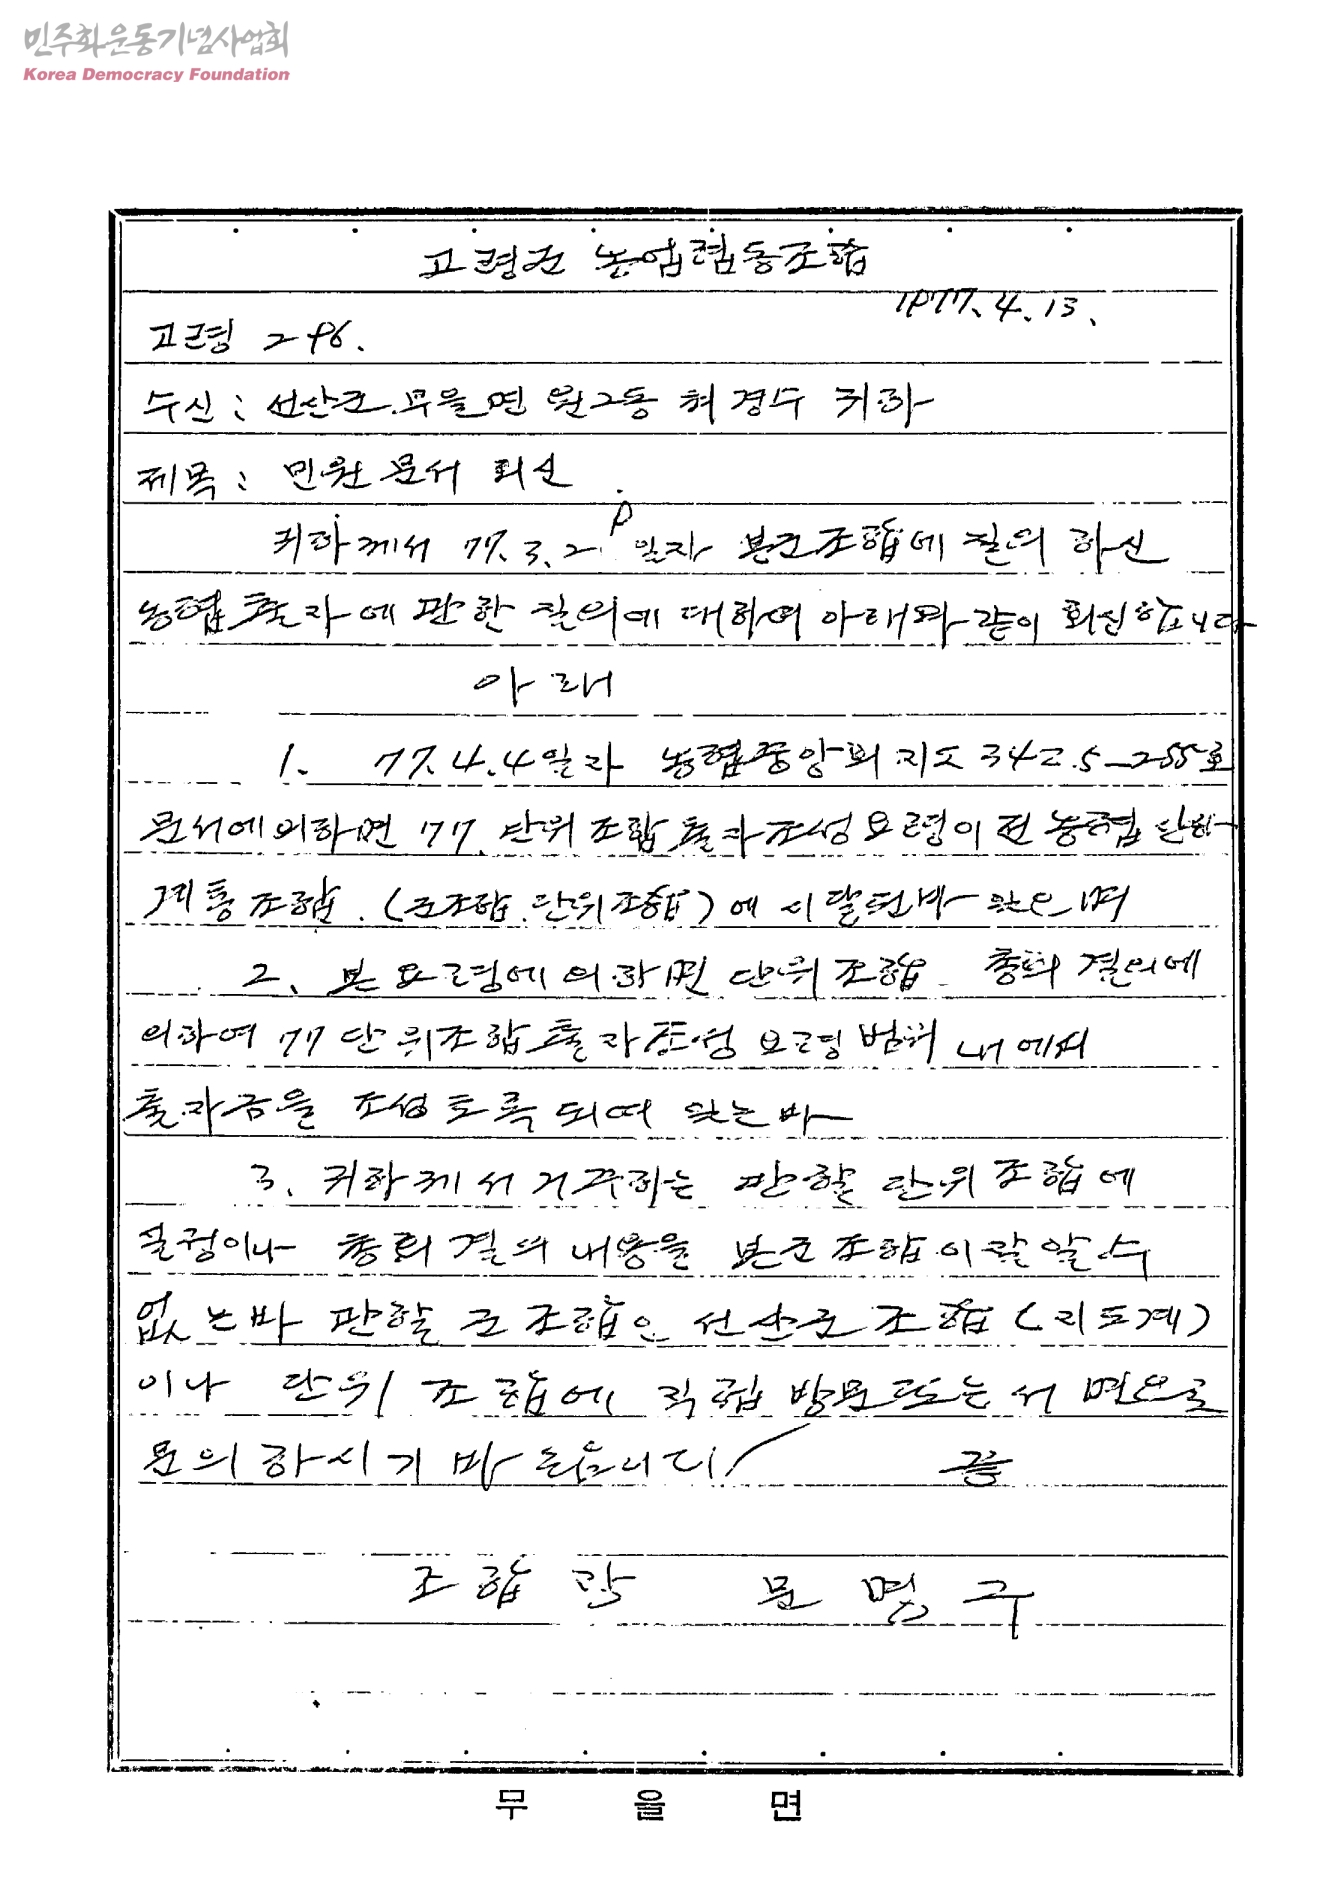 민주화운동기념사업회
Korea Democracy Foundation
고령군 농업협동조합
1977. 4. 13.
고령 2-96.
수신 : 선산군 무을면 원2동 허경수 귀하
제목 : 민원 문서 회신
귀하께서 77. 3. 29 일자 본군조합에 질의 하신
농협 출자에 관한 질의에 대하여 아래와 같이 회신합니다
아래
1. 77. 4. 4일자 농협중앙회 지도 342.5-255호
문서에 의하면 77. 단위조합 출자조성요령이 전 농협 산하
계통조합. (군조합. 단위조합)에 시달된바 있으며
2. 본 요령에 의하면 단위조합 총회 결의에
의하여 77 단위조합 출자조성 요령 범위 내에서
출자금을 조성토록 되여 있는바
3. 귀하께서 거주하는 관할 단위조합에
실정이나 총회 결의 내용을 본군조합이 알 수
없는바 관할 군조합인 선산군 조합 (지도계)
이나 단위 조합에 직접 방문또는 서면으로
문의 하시기 바랍니다 끝
조합장 문명구
무을면